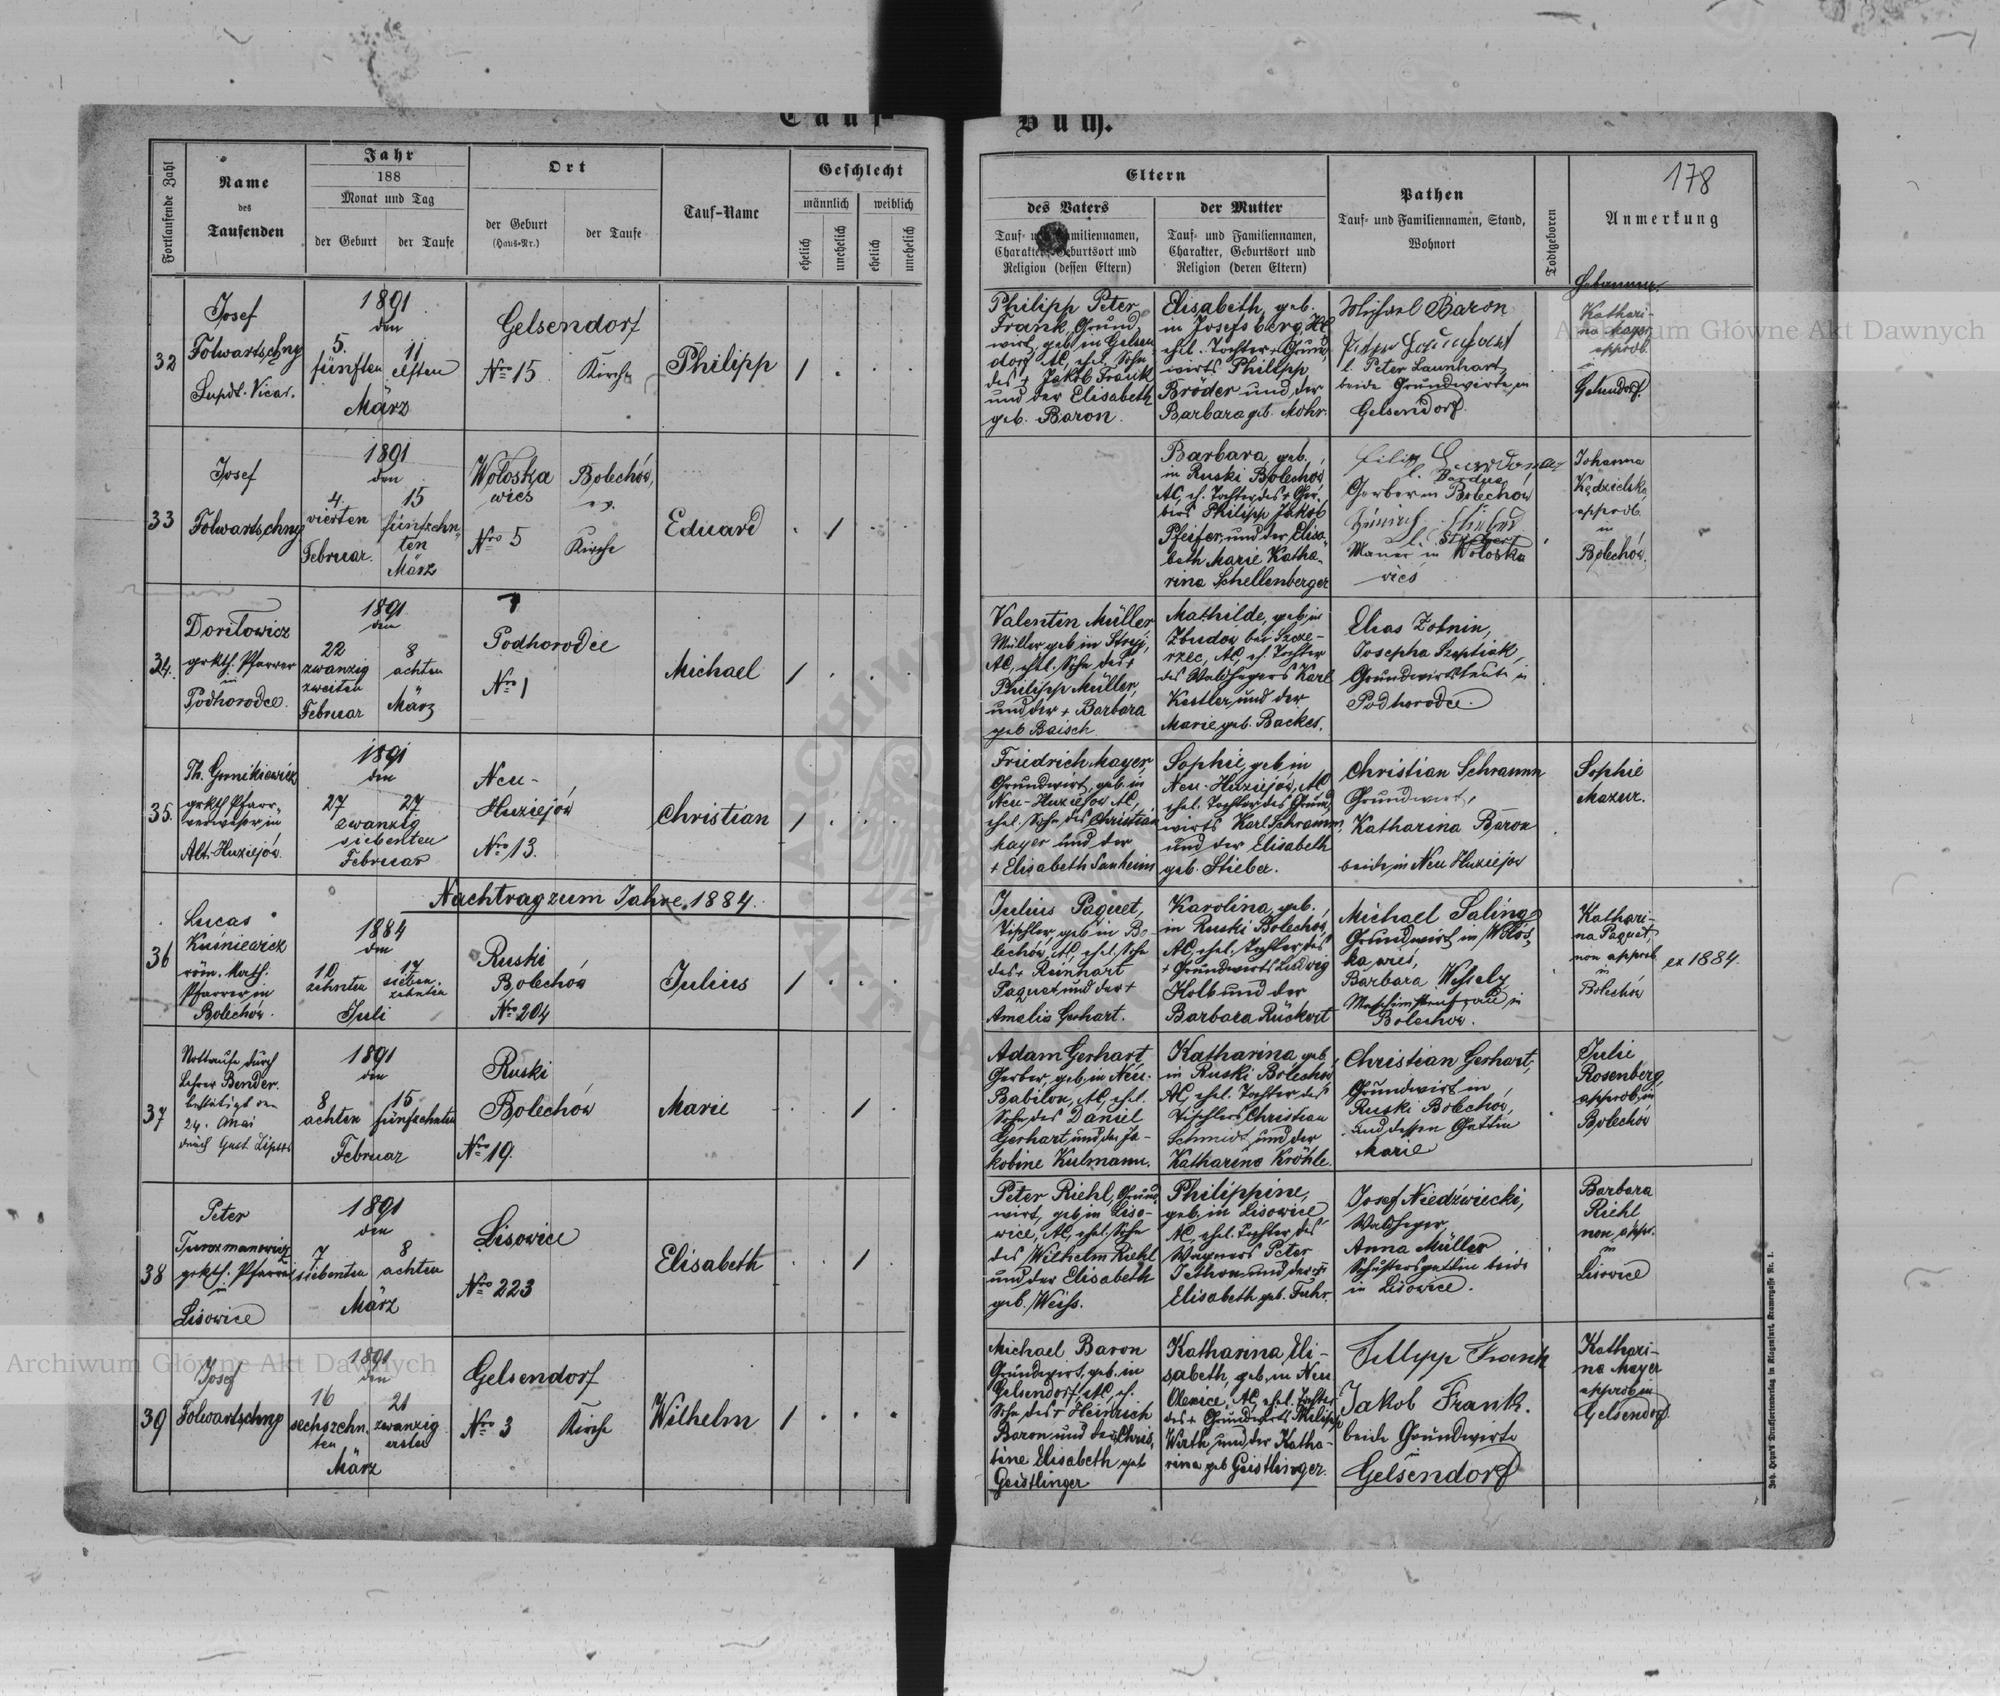 Tauf-
Buch.
178
Fortlaufende Zahl
Name
des
Taufenden
Jahr
188
Monat und Tag
der Geburt
der Taufe
Ort
der Geburt
(Haus-Nr.)
der Taufe
Tauf-Name
Geschlecht
männlich
weiblich
ehelich
unehelich
ehelich
unehelich
Eltern
des Vaters
Tauf- und Familiennamen,
Charakter, Geburtsort und
Religion (dessen Eltern)
der Mutter
Tauf- und Familiennamen,
Charakter, Geburtsort und
Religion (deren Eltern)
Pathen
Tauf- und Familiennamen, Stand,
Wohnort
Todtgeboren
Anmerkung
32
Josef
Folwartschny
Supdt. Vicar.
1891
den
5. 11
fünften elften
März
Gelsendorf
Nro 15
Kirche
Philipp
1
Philipp Peter
Frank, Grund-
wirt, geb. in Gelsen-
dorf AC, ehel. Sohn
des + Jakob Frank
und der Elisabeth
geb. Baron.
Elisabeth, geb.
in Josefsberg, HC
ehel. Tochter + Grund-
wirts Philipp
Bröder und der
Barbara geb. Mohr.
Michael Baron
Peter Launhart,
beide Grundwirte in
Gelsendorf.
Kathari-
na Mayer
approb.
in
Gelsendorf.
33
Josef
Folwartschny
1891
den
4. 15
vierten fünfzehn-
ten
Februar. März
Wołoska
wies
Nro 5
Bolechów,
ev.
Kirche
Eduard
1
Barbara, geb.
in Ruski Bolechów
AC, eh. Tochter des + Ger-
bers Philipp Jakob
Pfeifer, und der Elisa-
beth Marie Katha-
rina Schellenberger
Gerber in Bolechów
Maurer in Wołoska
wies
Johanna
Kędzielska
approb.
in
Bolechów.
34.
Doriłowicz
grkth. Pfarrer
in
Podhorodce.
1891
den
22 8
zwanzig achten
zweiten
Februar März
Podhorodce
Nro 1
Michael
1
Valentin Müller
Müller geb. in Stryj,
AC, ehel. Sohn des +
Philipp Müller,
und der + Barbara
geb. Baisch.
Mathilde, geb. in
Zbudów bei Szcze-
rzec, AC, eh. Tochter
des Waldhegers Karl
Kestler und der
Marie geb. Backes.
Elias Zotnin,
Josepha Szeptiak,
Grundwirtsleute in
Podhorodce.
35.
Th. Gunikiewicz
grkth Pfarr-
verweser in
Alt-Huziejów.
1891
den
27 27
zwanzig
siebenten
Februar
Neu-
Huziejów
Nro 13.
Christian
1
Friedrich Mayer
Grundwirt, geb. in
Neu-Huziejow AC,
ehel. Sohn des Christian
Mayer und der
+ Elisabeth Sanheim
Sophie, geb. in
Neu-Huziejów, AC,
ehel. Tochter des Grund-
wirts Karl Schramm,
und der Elisabeth
geb. Stieber.
Christian Schramm
Grundwirt,
Katharina Baron
beide in Neu Huziejow
Sophie
Mazur.
Nachtrag zum Jahre 1884.
36
Lucas
Kuśniewicz
röm. Kath.
Pfarrer in
Bolechów.
1884
den
10 17
zehnten sieben-
zehnten
Juli
Ruski
Bolechów
Nro 204
Julius
1
Julius Paquet,
Tischler, geb. in Bo-
lechów, AC, ehel. Sohn
des + Reinhart
Paquet und der +
Amalia Gerhart.
Karolina, geb.
in Ruski Bolechów,
AC, ehel. Tochter des
+ Grundwirts Ludwig
Kolb und der
Barbara Rückert
Michael Salinger
Grundwirt in Wołos-
ka wies,
Barbara Wessely
Maschinistensfrau in
Bolechów.
Kathari-
na Paquet,
non approb.
in
Bolechów
ex 1884.
37
Nottaufe durch
Lehrer Bender.
bestätigt den
24. Mai
durch Gust. Lipser
1891
den
8 15
achten fünfzehnten
Februar
Ruski
Bolechów
Nro 19.
Marie
1
Adam Gerhart
Gerber, geb. in Neu-
Babilon, AC, ehel.
Sohn des Daniel
Gerhart, und der Ja-
kobine Kulmann.
Katharina geb.
in Ruski Bolechów,
AC, ehel. Tochter des
Tischlers Christian
Schmidt und der
Katharina Kröhle.
Christian Gerhart,
Grundwirt in
Ruski Bolechów,
und dessen Gattin
Marie
Julie
Rosenberg,
approb. in
Bolechów
38
Peter
Turozmanowicz
grkth. Pfarrer
in
Lisowice
1891
den
7 8
siebenten achten
März
Lisowice
Nro 223
Elisabeth
1
Peter Riehl, Grund-
wirt, geb. in Liso-
wice, AC, ehel. Sohn
des Wilhelm Riehl
und der Elisabeth
geb. Weiss.
Philippine,
geb. in Lisowice
AC, ehel. Tochter des
Wagners Peter
Jethon und der
Elisabeth geb. Fuhr.
Josef Niedźwiecki,
Waldheger,
Anna Müller
Schustersgattin beide
in Lisowice.
Barbara
Riehl
non appr.
in
Lisowice
39
Josef
Folwartschny
1891
den
16 21
sechszehn- zwanzig
ten ersten
März
Gelsendorf
Nro 3
Kirche
Wilhelm
1
Michael Baron
Grundwirt, geb. in
Gelsendorf, AC, eh.
Sohn des + Heinrich
Baron und der Chris-
tine Elisabeth geb
Geistlinger
Katharina Eli-
sabeth, geb. in Neu
Olexice, AC, ehel. Tochter
des + Grundwirts Philipp
Wirth, und der Katha-
rina geb. Geistlinger.
Fillypp Frank
Jakob Frank.
beide Grundwirte
in
Gelsendorf
Kathari-
na Mayer
approb. in
Gelsendorf.
Joh. Heyn's Drucksortenverlag in Klagenfurt, Kramergasse Nr. 1.
Archiwum Główne Akt Dawnych
Archiwum Główne Akt Dawnych